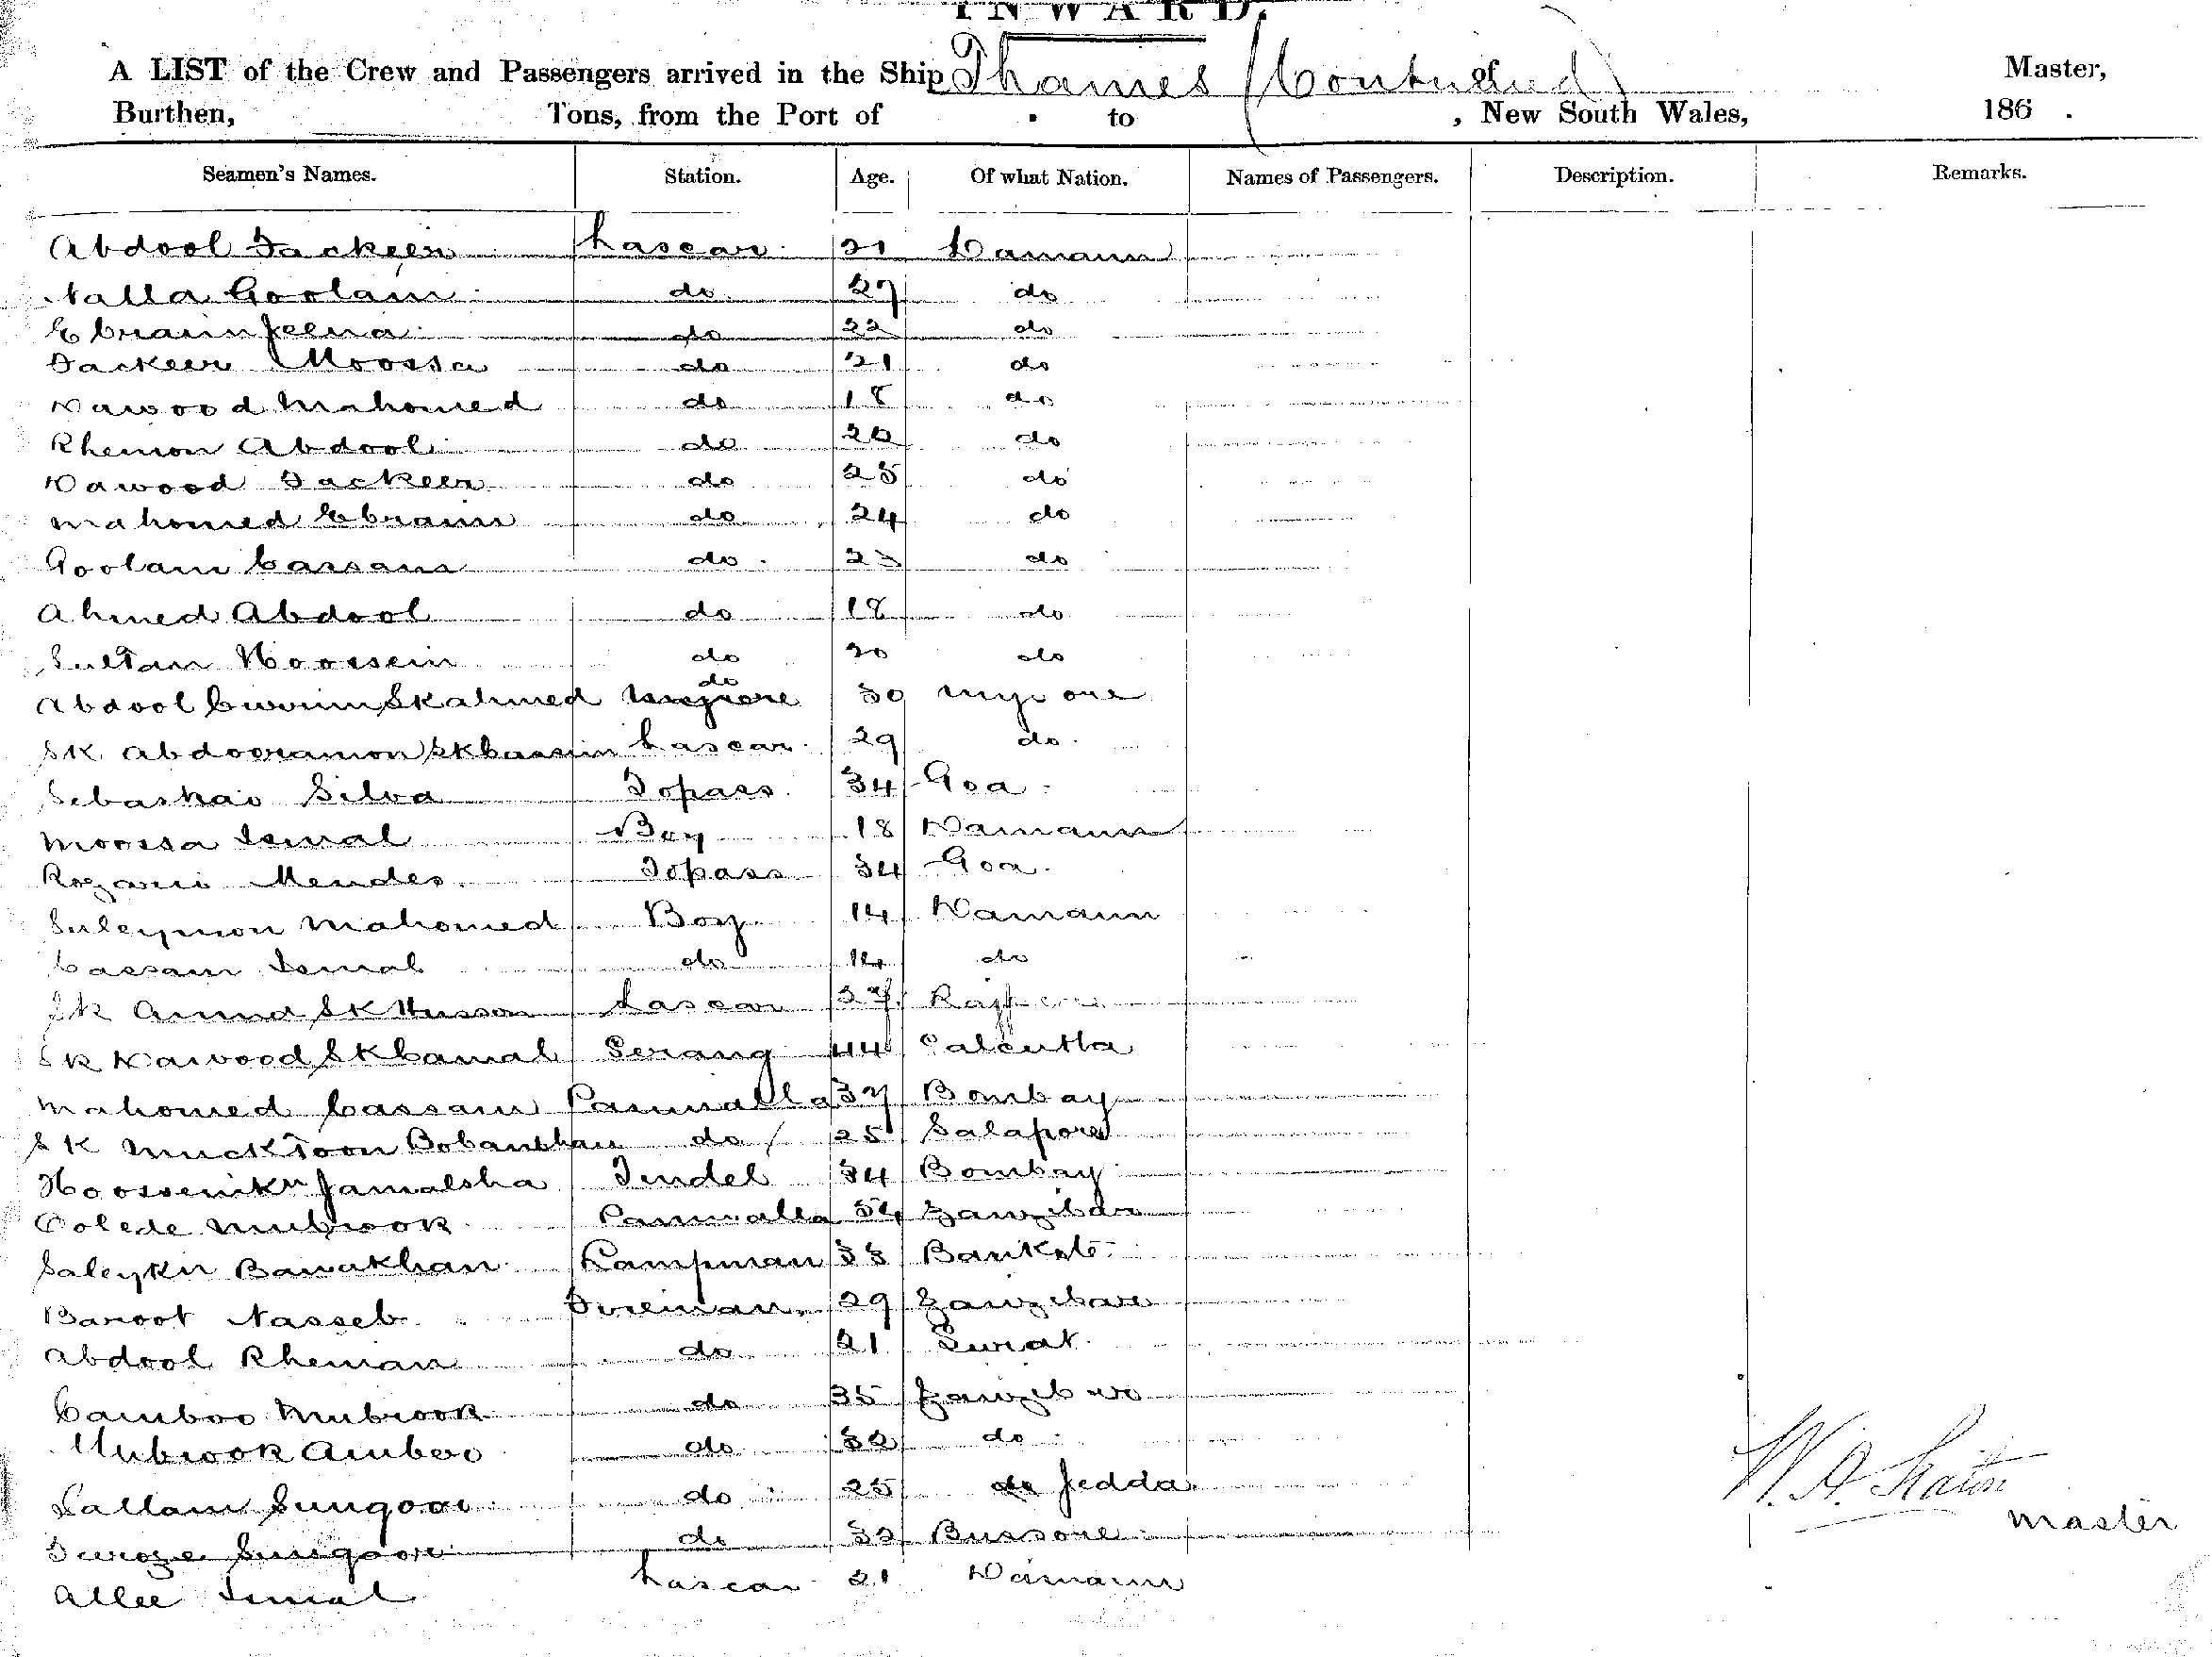 INWARD.
A LIST of the Crew and Passengers arrived in the Ship Thames (Continued) of Master,
Burthen, Tons, from the Port of to , New South Wales, 186 .
Seamen's Names. Station. Age. Of what Nation. Names of Passengers. Description. Remarks.
Abdool Fackeer Lascar 21 Damaun
Nalla Goolam do 27 do
Ebraim Jeena do 22 do
Fackeer Moossa do 21 do
Dawood Mahomed do 18 do
Rhemon Abdool do 20 do
Dawood Fackeer do 25 do
Mahomed Ebraim do 24 do
Goolam Cassam do 23 do
Ahmed Abdool do 18 do
Sultan Hoossein do 20 do
Abdool Currim Sk Ahmed do 30
Sk Abdooramon Sk Cassim Lascar 29 do
Sebastiao Silva Topass 34 Goa
Moossa Ismal Boy 18 Damaun
Mendes Topass 34 Goa
Suleymon Mahomed Boy 14 Damaun
Cassam Ismal do 14 do
Sk Sk Husson Lascar
Sk Dawood Sk Camal Serang 44 Calcutta
Mahomed Cassam Panniwalla 37 Bombay
Sk do 25
Jamalsha Tindel 34 Bombay
Mubrook 34 Zanzibar
Lampman 33
Nasseb Fireman 29 Zanzibar
Abdool Rheman do 21 Surat
Camboo Mubrook do 35
Mubrook Amboo do 32 do
Sallam Sungoor do 25 do Jedda
Feroze Sungoor do 32 Bussore
Allee Ismal Lascar 21 Damaun
W. A.
Master